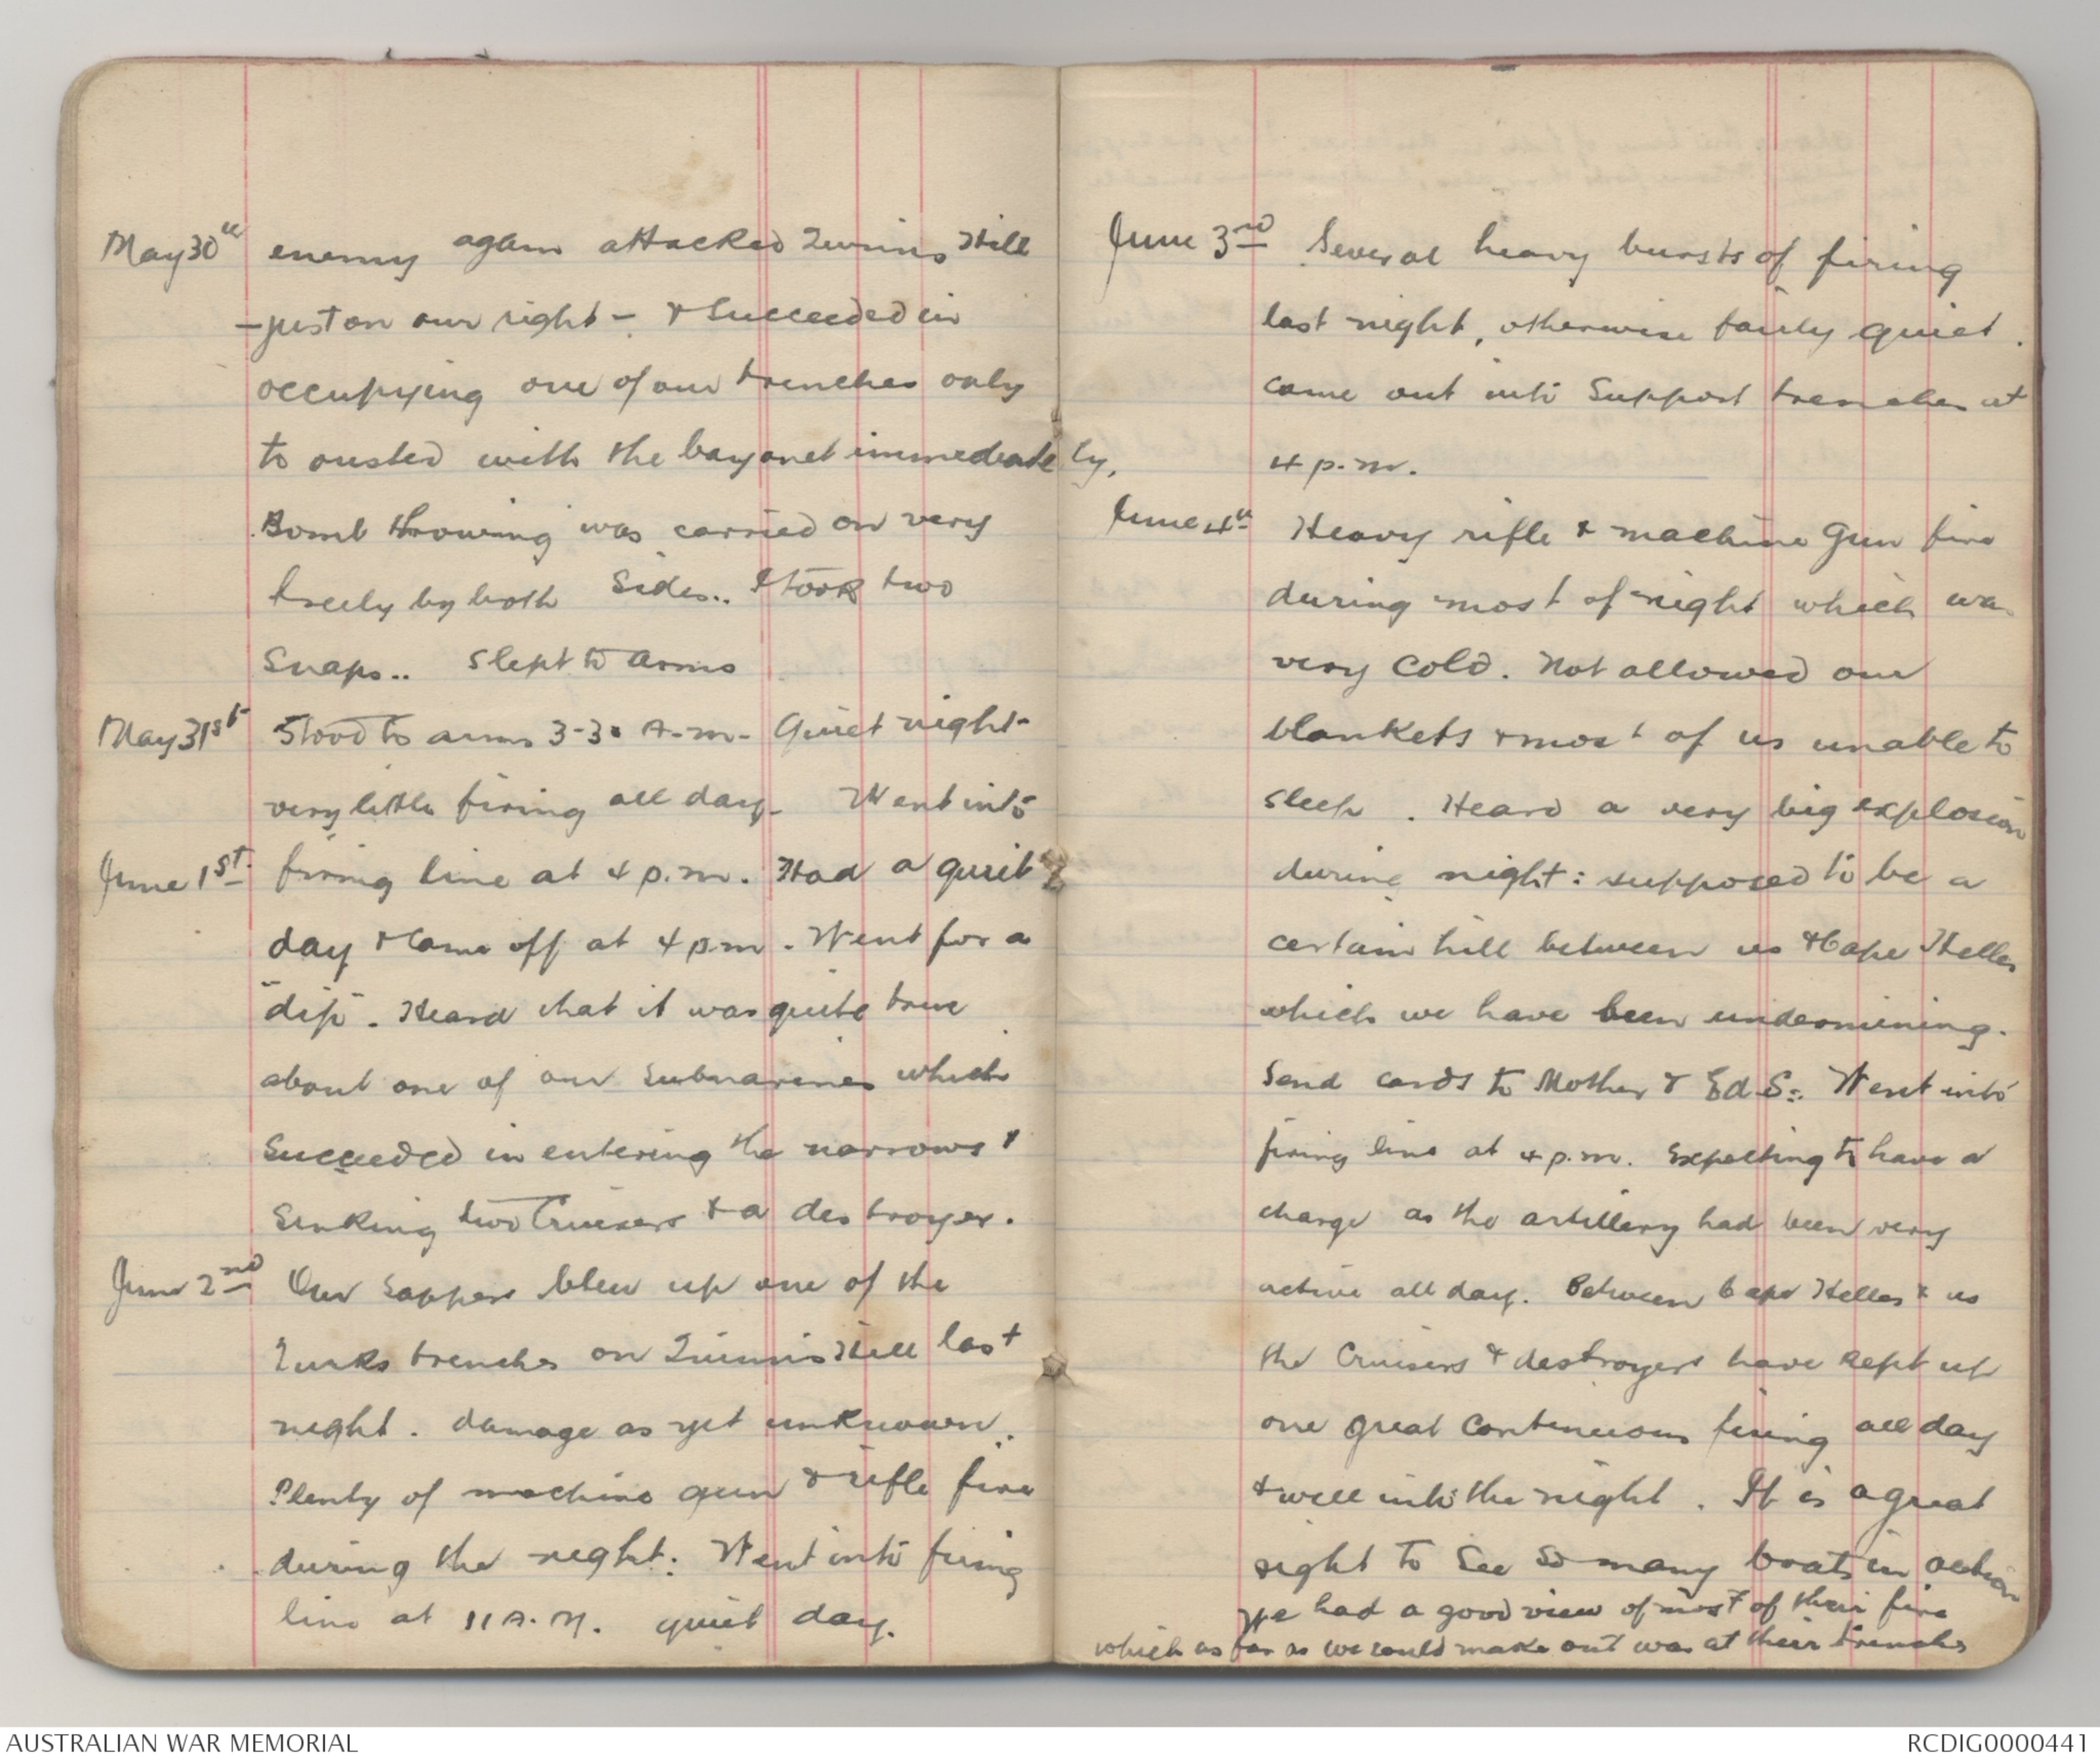 May 30th enemy again attacked Quinns Hill
- just on our right - & succeeded in
occupying one of our trenches only
to ousted with the bayonet immediately,
Bomb throwing was carried on very
freely by both sides.. I took two
snaps.. slept to arms
May 31st Stood to arms 3-30 A.m- Quiet night-
very little firing all day- Went into
June 1st. firing line at 4 p.m. Had a quiet
day & came off at 4 p.m. Went for a
"dip". Heard that it was quite true
about one of our submarines which
succeeded in entering the narrows &
sinking two Cruisers & a destroyer.
June 2nd Our sappers blew up one of the
Turks trenches on Quinns Hill last
night. damage as yet unknown..
Plenty of machine gun & rifle fire
during the night: Went into firing
line at 11 A.M. quiet day.
June 3rd Several heavy bursts of firing
last night, otherwise fairly quiet.
came out into Support trenches at
4 p.m.
June 4th Heavy rifle & machine Gun fire
during most of night which was
very cold. Not allowed our
blankets & most of us unable to
sleep. Heard a very big explosion
during night: supposed to be a
certain hill between us & Cape Helles
which we have been undermining.
Send cards to Mother & Ed S:. Went into
firing line at 4 p.m. Expecting to have a
charge as the artillery had been very
active all day. Between Cape Helles & us
the Cruisers & destroyers have kept up
one great continuous firing all day
& well into the night. It is a great
sight to see so many boats in action
We had a good view of most of their fire
which as far as we could make out was at their trenches
AUSTRALIAN WAR MEMORIAL
RCDIG0000441